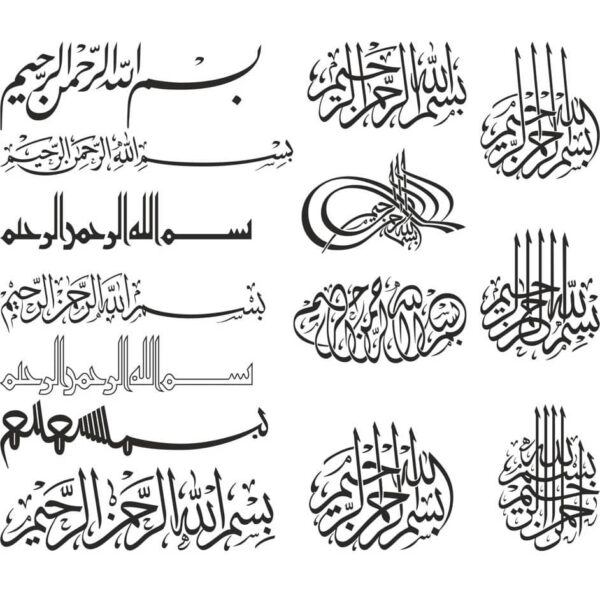 بسم الله الرحمن الرحيم
بسم الله الرحمن الرحيم
بسم الله الرحمن الرحيم
بسم الله الرحمن الرحيم
بسم الله الرحمن الرحيم
بسم
بسم الله الرحمن الرحيم
بسم الله الرحمن الرحيم
بسم الله الرحمن الرحيم
بسم الله الرحمن الرحيم
بسم الله الرحمن الرحيم
بسم الله الرحمن الرحيم
بسم الله الرحمن الرحيم
بسم الله الرحمن الرحيم